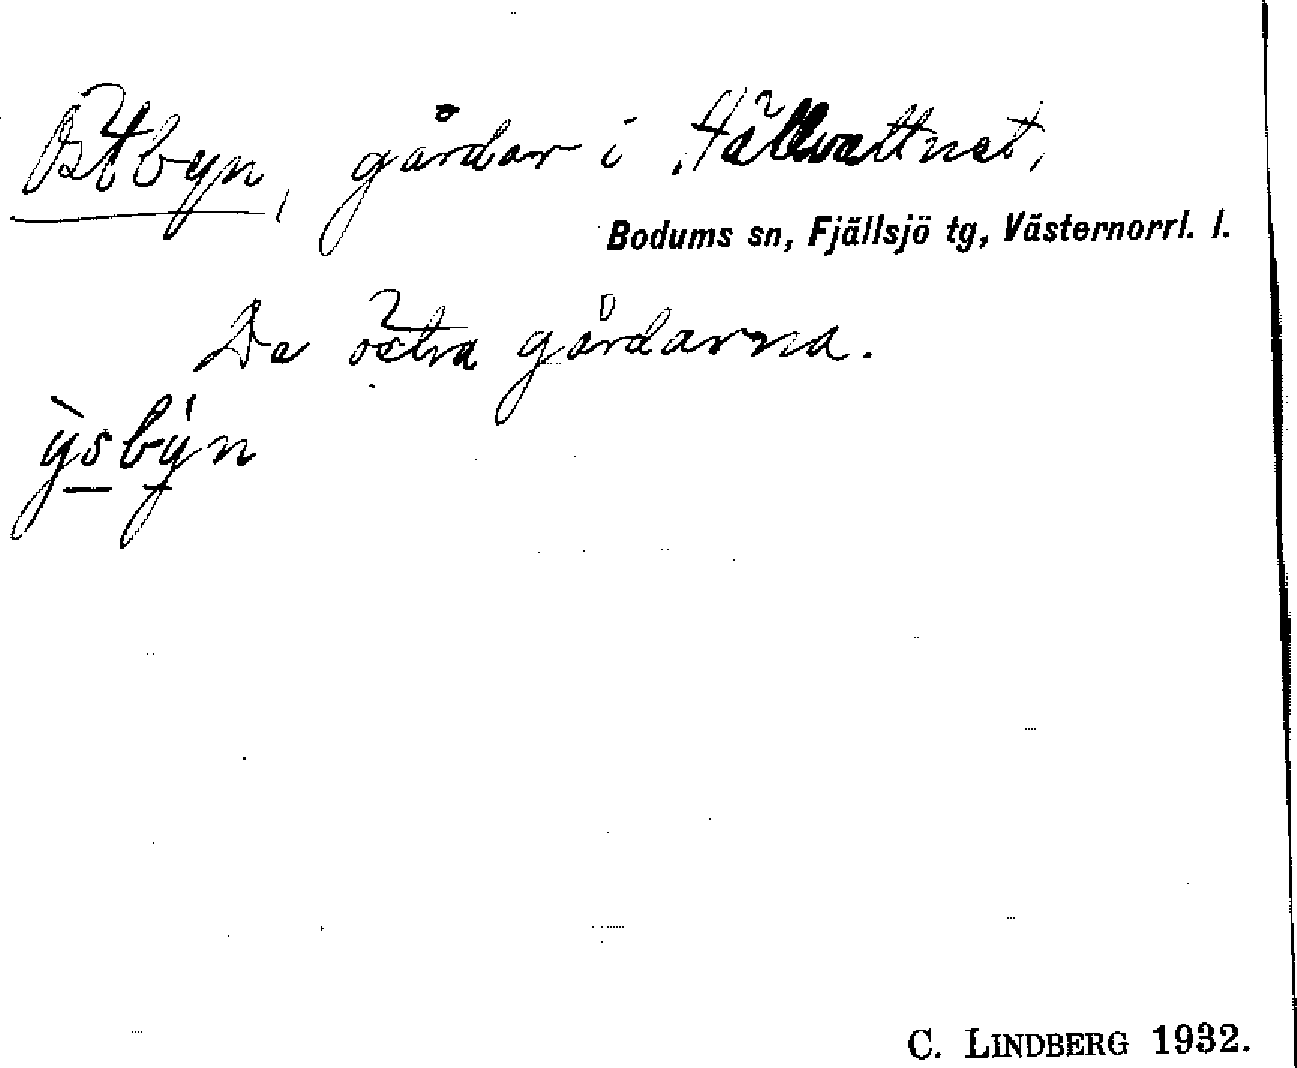 Östbyn, gårdar i Hällvattnet,
Bodums sn, Fjällsjö tg, Västernorrl. l.
De östra gårdarna.
ỳsbýn
C. LINDBERG 1932.